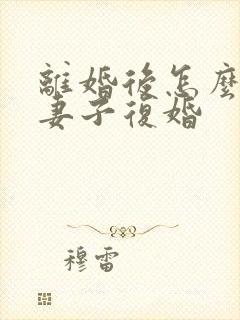 離婚後怎麼
妻子復婚
穆雷